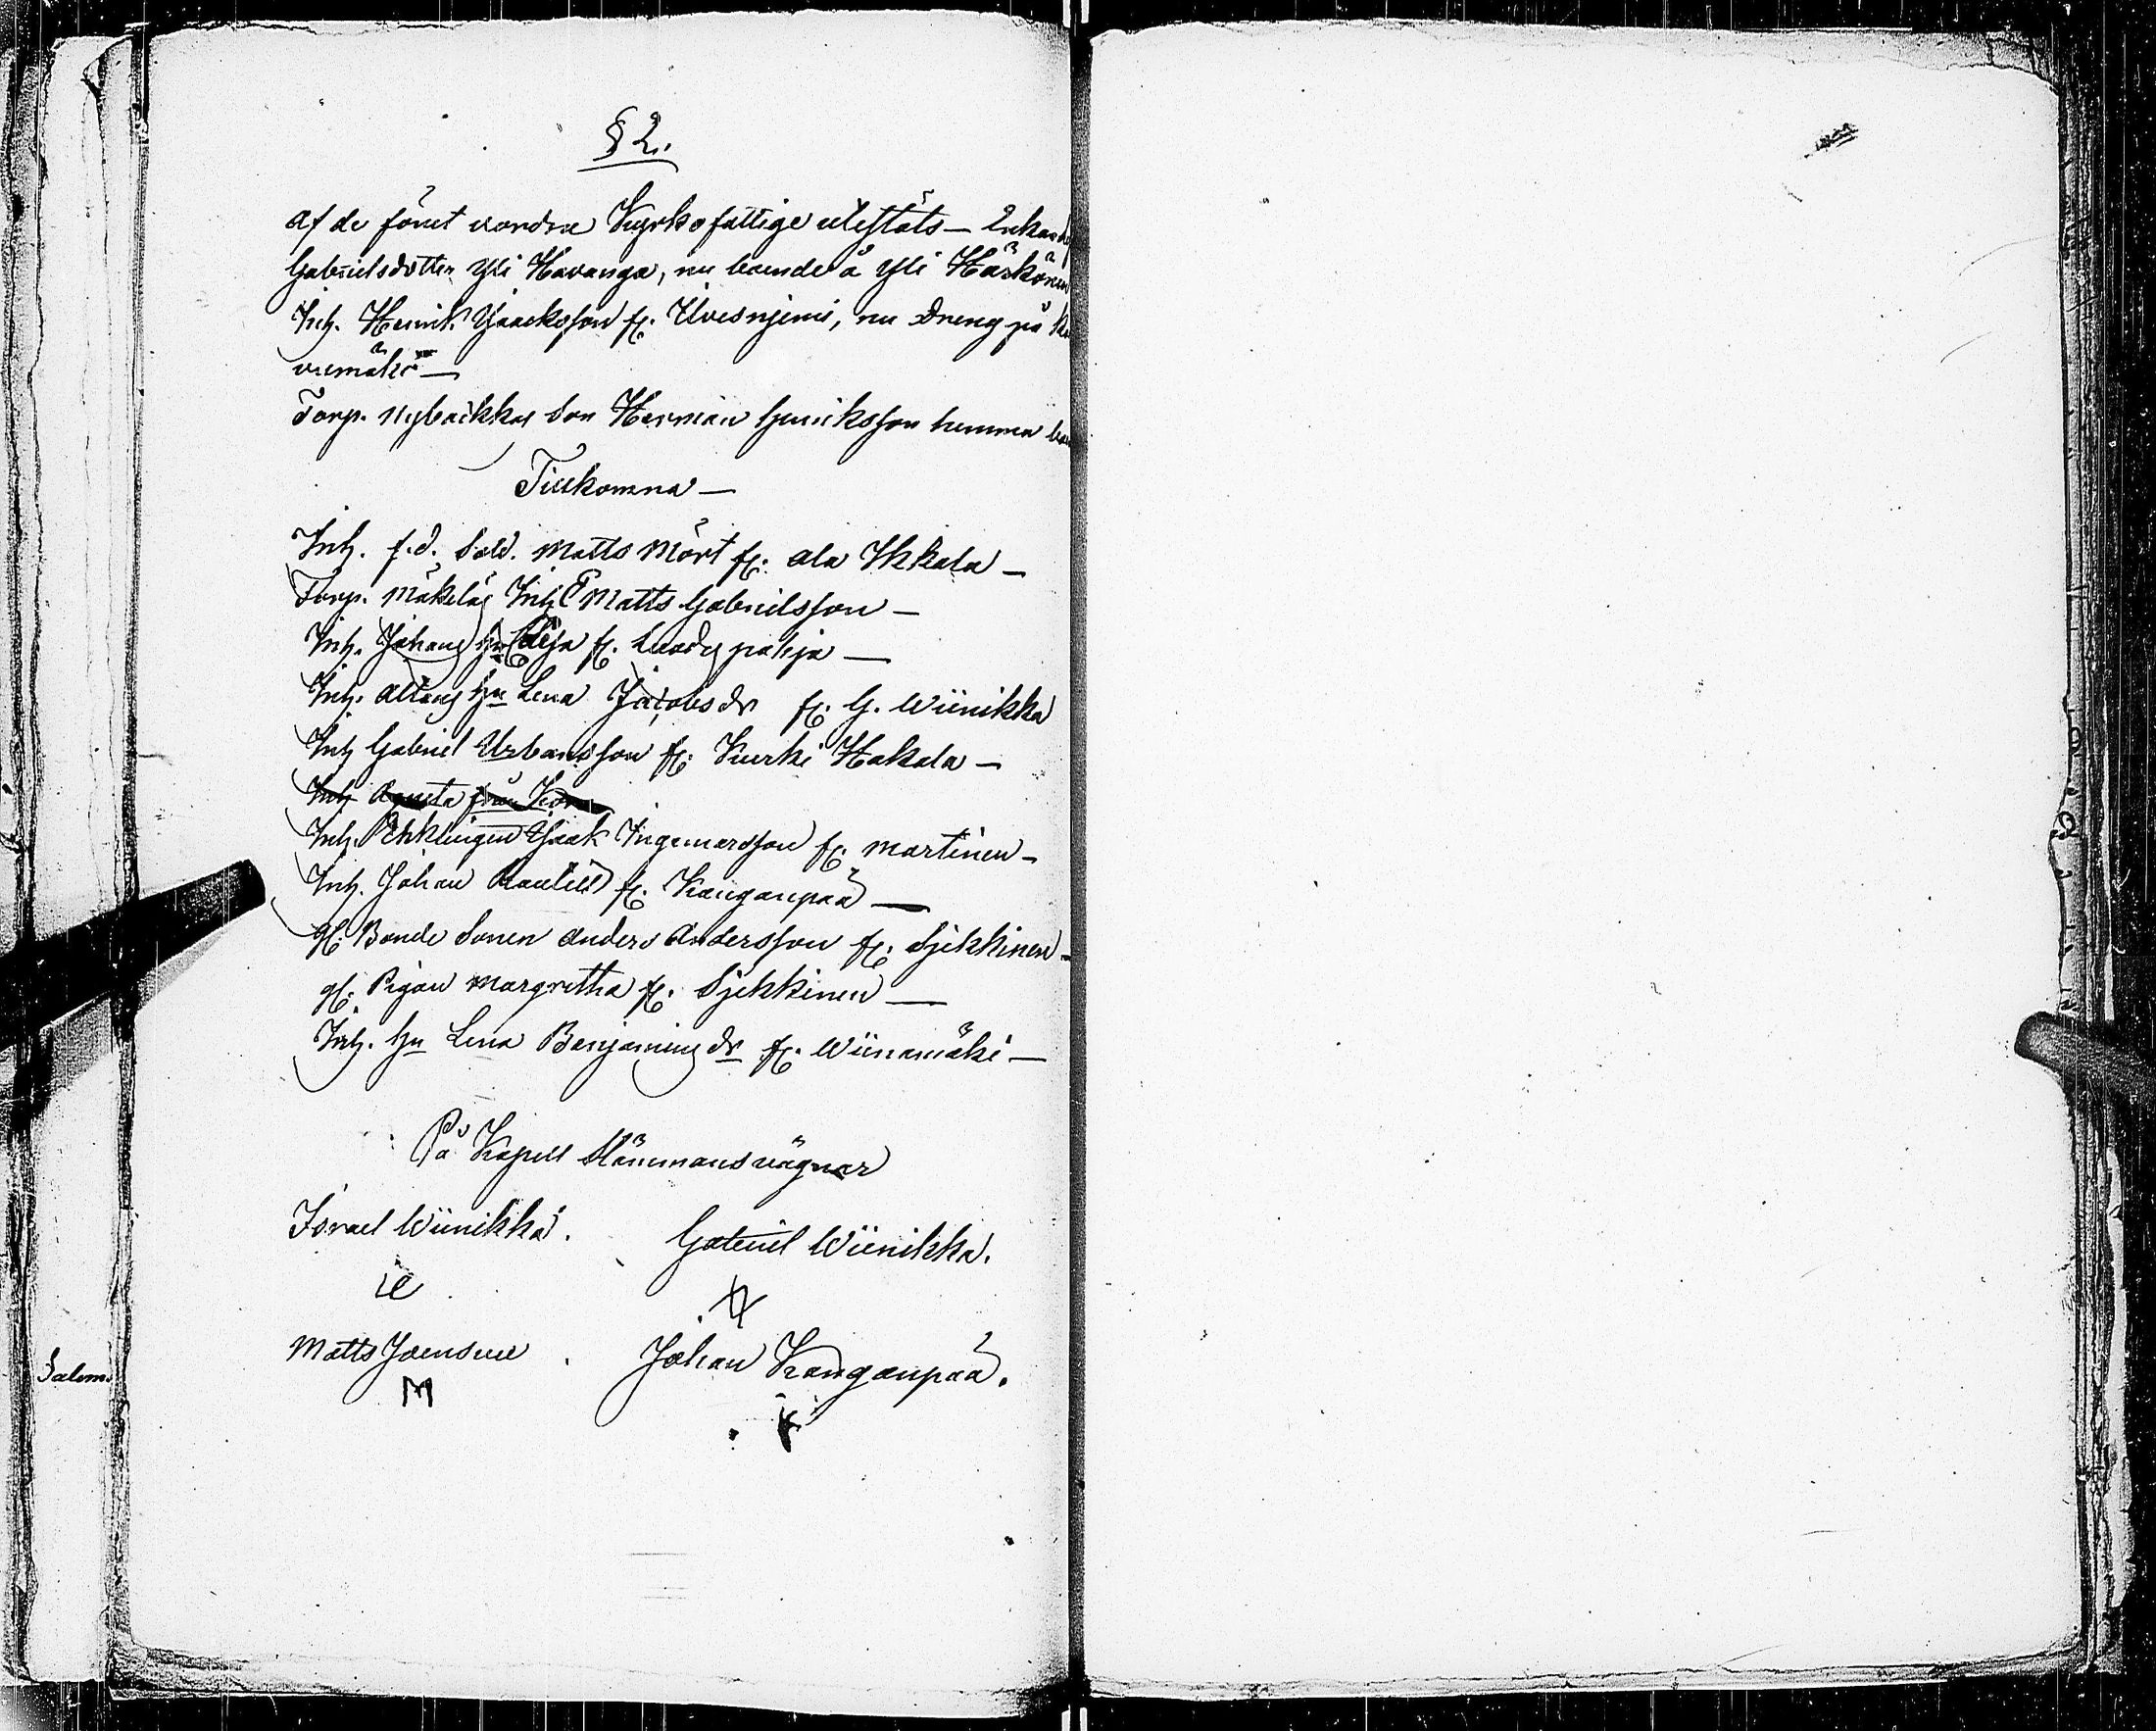 § 2.
Af de förut vordne Kyrkofattige uteslöts — Enkan
Gabrielsdotter Yli Havanga, nu boende å Yli Härkönen
Inh. Henrik Isacksson fr. Ilvesnjemi, nu Dreng på
vumäki —
Torp. Nybackkas Son Herman Henriksson hemma
Tillkomna —
Inh. f.d. Sold. Matts Mört fr. Ala Ikkala —
Torp. Mäkeläs Inh Matts Gabrielsson —
Inh. Johans hu Caisa fr. pohja —
Inh. hu Lena Jacobsdr fr. G. Wiinikka
Inh Gabriel Urbansson fr. Kurki Hakala —
Inh Agneta från
Inh. Isaak Ingemarsson fr. Martinen —
Inh. Johan fr. Kanganpää —
gl. Bonde Sonen Anders Andersson fr. Sjekkinen —
gl. Pigan Margretha fr. Sjekkinen —
Inh. hu Lena Benjaminsdr fr. Wiinamäki —
På Kapell Stämmans vägnar
Israel Wiinikka. Gabriel Wiinikka.
Matts Joensuu. Johan Kanganpää.
M
Salem